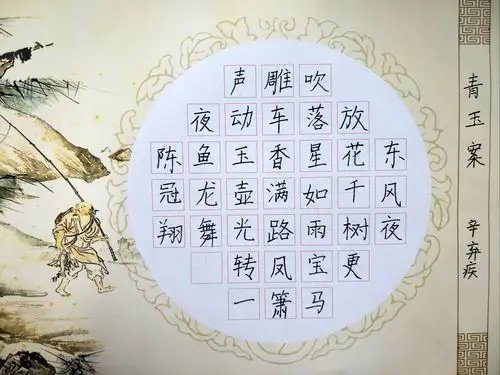 青玉案 辛弃疾
东风夜
放花千树更
吹落星如雨宝马
雕车香满路凤箫
声动玉壶光转一
夜鱼龙舞
陈冠翔